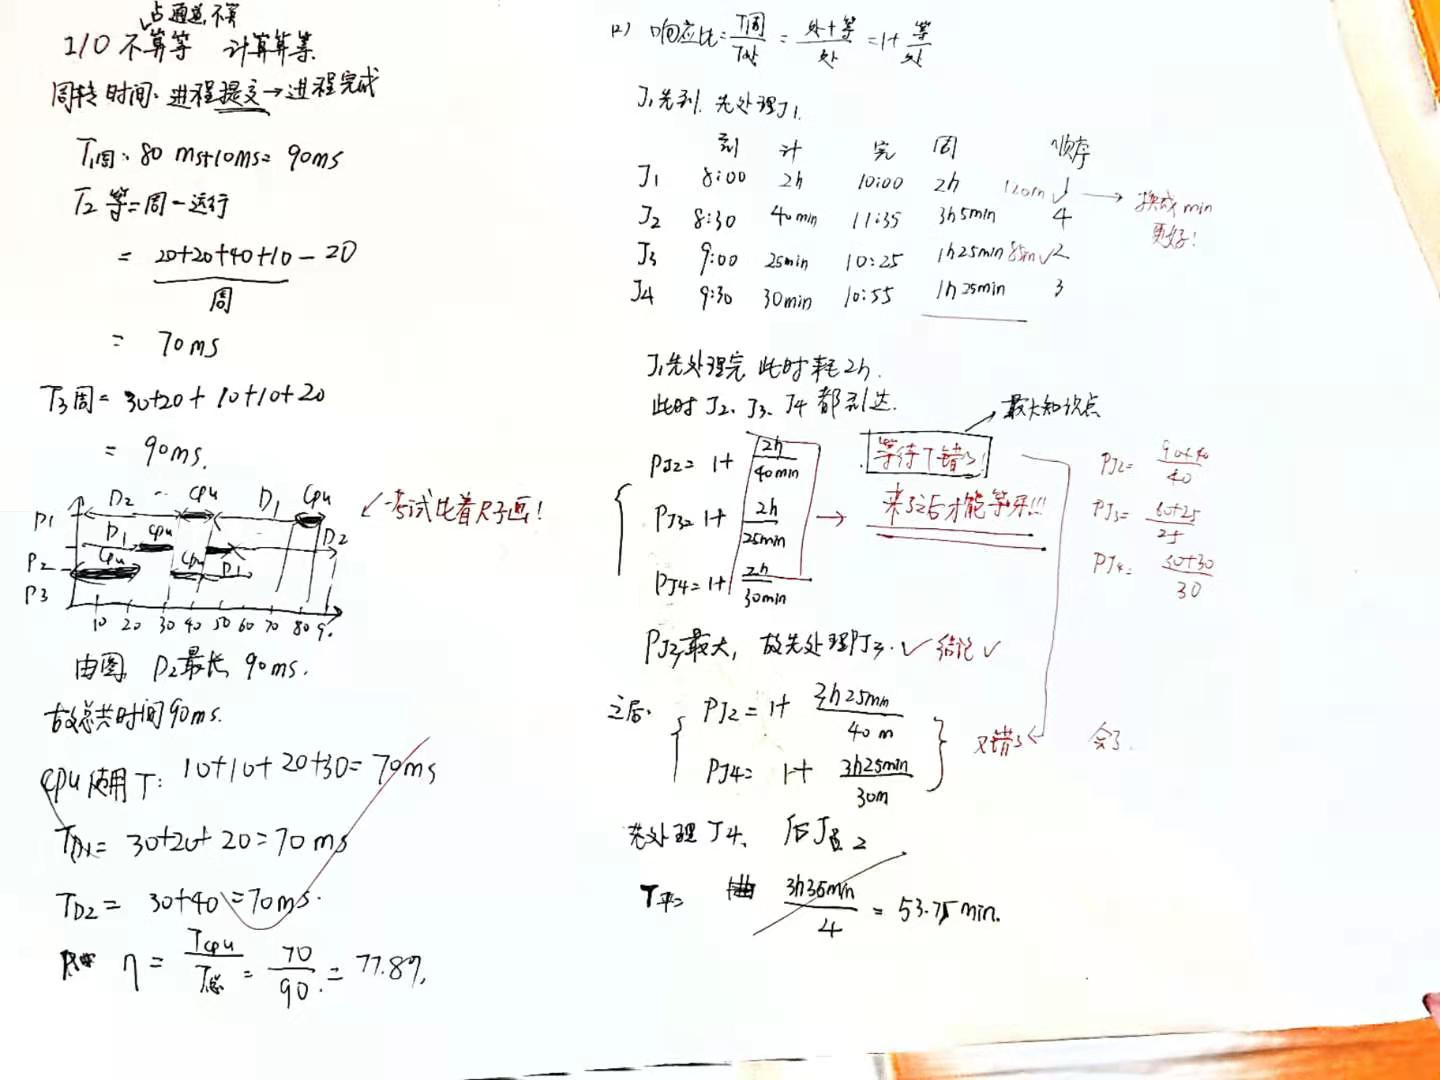 占通道,不算
I/O 不算等 计算算等.
周转时间: 进程提交→进程完成
T1周: 80 ms+10ms= 90ms
T2等=周-运行
= 20+20+40+10-20
周
= 70ms
T3周= 30+20+10+10+20
= 90ms.
D2 CPU D1 CPU
P1
D1 CPU D2
P2 CPU CPU D1
P3
10 20 30 40 50 60 70 80 9.
考试比着尺子画!
由图, P2最长 90ms.
故总共时间90ms.
CPU使用T: 10+10+20+30=70ms
TD1= 30+20+20=70ms
TD2= 30+40=70ms.
η = Tcpu/T总 = 70/90 = 77.8%
(2) 响应比= T周/T处 = 处+等/处 =1+ 等/处
J1先到. 先处理J1.
到 计 完 周 顺序
J1 8:00 2h 10:00 2h 120m 1
J2 8:30 40min 11:35 3h5min 4
J3 9:00 25min 10:25 1h25min 85m 2
J4 9:30 30min 10:55 1h25min 3
换成min
更好!
J1先处理完 此时耗2h.
此时 J2、J3、J4 都到达.
最大知识点
PJ2= 1+ 2h/40min
PJ3= 1+ 2h/25min
PJ4= 1+ 2h/30min
等待T错了!
来了之后才能等呀!!!
PJ2= 90+40/40
PJ3= 60+25/25
PJ4= 30+30/30
PJ3最大, 故先处理PJ3. ✓ 结论 ✓
之后.
PJ2= 1+ 3h25min/40m
PJ4= 1+ 3h25min/30m
又错了
会了.
先处理J4、后J2
T平= 3h35min/4 = 53.75min.